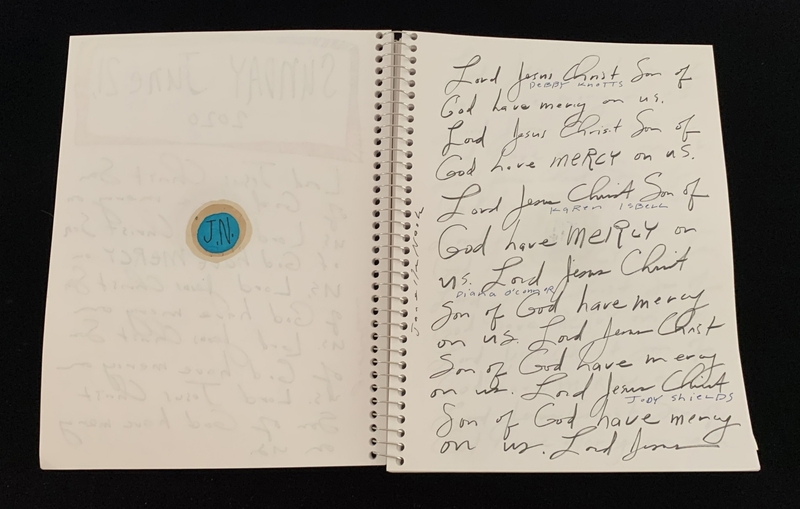 J.N.
Lord Jesus Christ Son of
DEBBY KNOTTS
God have mercy on us.
Lord Jesus Christ Son of
God have MERCY on us.
Lord Jesus Christ Son of
KAREN ISBELL
God have MERCY on
us. Lord Jesus Christ
Diana O'Connor
Son of God have mercy
on us. Lord Jesus Christ
Son of God have mercy
on us. Lord Jesus Christ
JODY SHIELDS
Son of God have mercy
on us. Lord Jesus